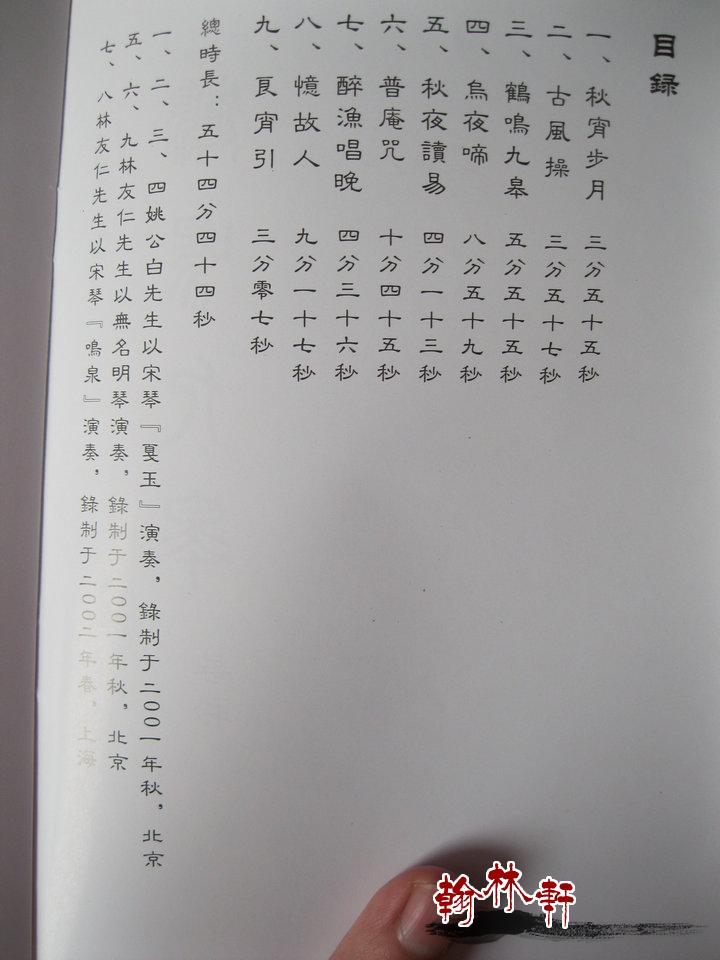 目録
一、秋宵步月 三分五十五秒
二、古風操 三分五十七秒
三、鶴鳴九皋 五分五十五秒
四、烏夜啼 八分五十九秒
五、秋夜讀易 四分一十三秒
六、普庵咒 十分四十五秒
七、醉漁唱晚 四分三十六秒
八、憶故人 九分一十七秒
九、良宵引 三分零七秒
總時長：五十四分四十四秒
一、二、三、四姚公白先生以宋琴『戛玉』演奏，錄制于二〇〇一年秋，北京
五、六、九林友仁先生以無名明琴演奏，錄制于二〇〇一年秋，北京
七、八林友仁先生以宋琴『鳴泉』演奏，錄制于二〇〇二年春，上海
翰林軒